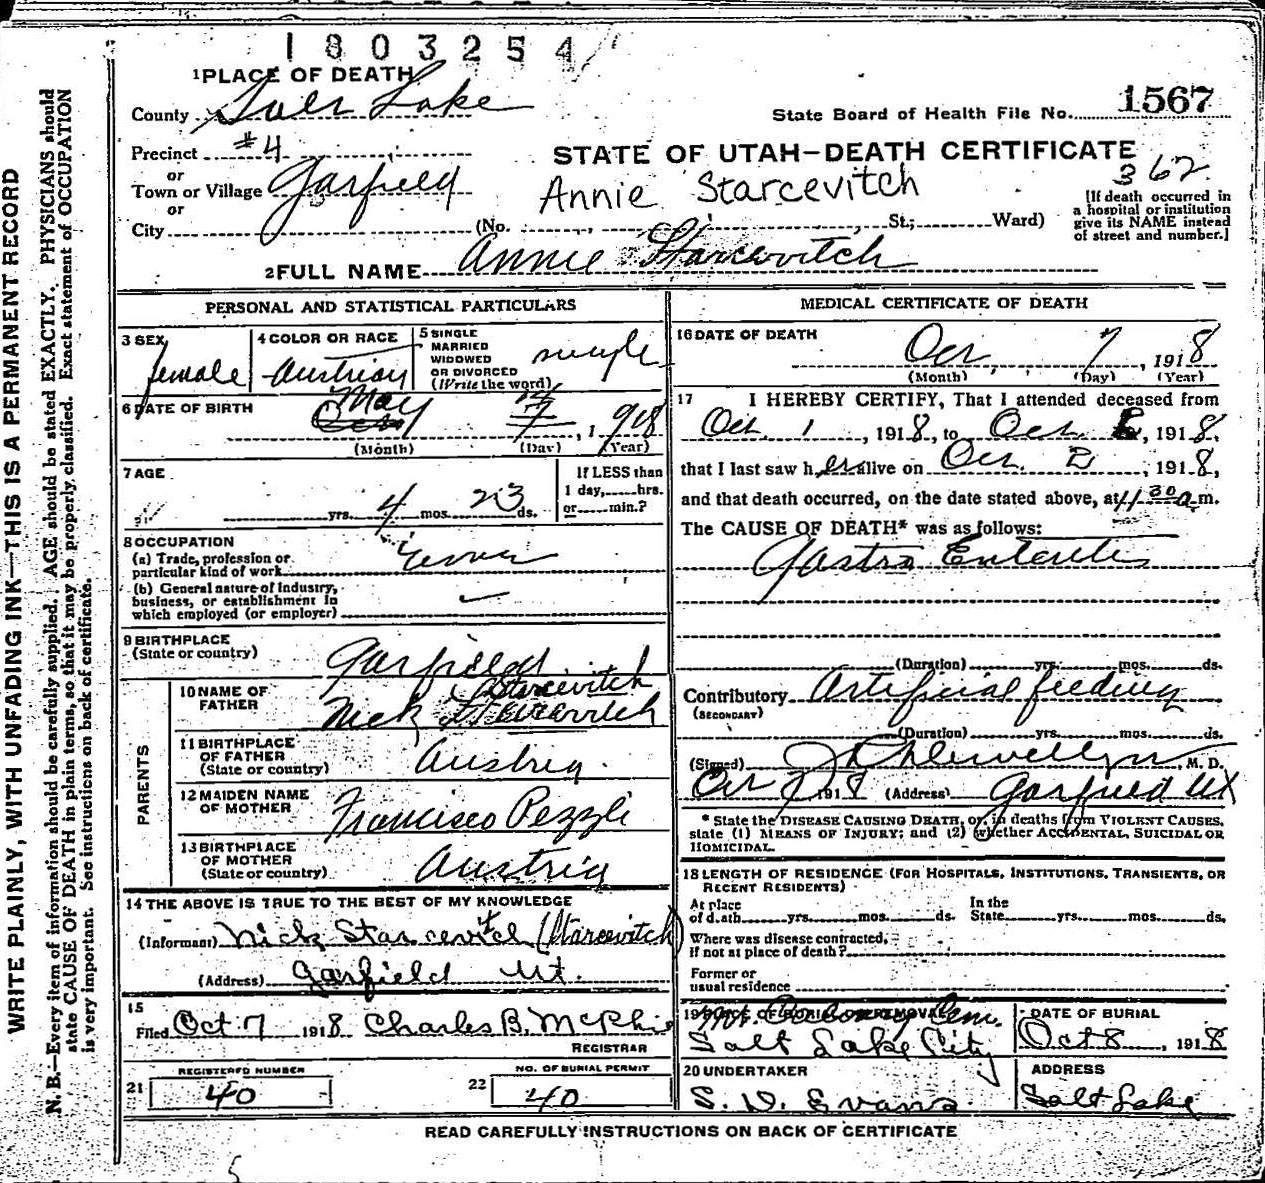 1803254
1 PLACE OF DEATH
County Salt Lake
State Board of Health File No. 1567
Precinct #4
STATE OF UTAH—DEATH CERTIFICATE
362
or
Town or Village Garfield
Annie Starcevitch
or
City (No. , St.; Ward)
[If death occurred in a hospital or institution give its NAME instead of street and number.]
2 FULL NAME Annie Starcevitch
PERSONAL AND STATISTICAL PARTICULARS
3 SEX female
4 COLOR OR RACE Austrian
5 SINGLE MARRIED WIDOWED OR DIVORCED (Write the word) single
6 DATE OF BIRTH May , 1918
(Month) (Day) (Year)
7 AGE yrs. 4 mos. 23 ds.
If LESS than 1 day, hrs. or min.?
8 OCCUPATION
(a) Trade, profession or particular kind of work
(b) General nature of industry, business, or establishment in which employed (or employer)
9 BIRTHPLACE (State or country) Garfield
PARENTS
10 NAME OF FATHER Nick Starcevitch
Starcevitch
11 BIRTHPLACE OF FATHER (State or country) Austria.
12 MAIDEN NAME OF MOTHER Francisco Pezzli
13 BIRTHPLACE OF MOTHER (State or country) Austria
14 THE ABOVE IS TRUE TO THE BEST OF MY KNOWLEDGE
(Informant) Nick Starcevitch (Starcevitch)
(Address) Garfield Ut.
15
Filed Oct 7 1918 Charles B. McPhie
REGISTRAR
21 REGISTERED NUMBER 40
22 NO. OF BURIAL PERMIT 40
MEDICAL CERTIFICATE OF DEATH
16 DATE OF DEATH
Oct 7, 1918
(Month) (Day) (Year)
17 I HEREBY CERTIFY, That I attended deceased from
Oct. 1, 1918, to Oct 2, 1918,
that I last saw her alive on Oct. 2, 1918,
and that death occurred, on the date stated above, at 11 30 a m.
The CAUSE OF DEATH* was as follows:
Gastro Enteretis
(Duration) yrs. mos. ds.
Contributory Artificial feeding
(SECONDARY)
(Duration) yrs. mos. ds.
(Signed) Llewellyn, M. D.
Oct 7 1918 (Address) Garfield Ut
* State the DISEASE CAUSING DEATH, or, in deaths from VIOLENT CAUSES, state (1) MEANS OF INJURY; and (2) whether ACCIDENTAL, SUICIDAL OR HOMICIDAL.
18 LENGTH OF RESIDENCE (FOR HOSPITALS, INSTITUTIONS, TRANSIENTS, OR RECENT RESIDENTS)
At place of death yrs. mos. ds. In the State yrs. mos. ds.
Where was disease contracted, if not at place of death?
Former or usual residence
19 PLACE OF BURIAL OR REMOVAL Mt. Calvary Cem.
Salt Lake City
DATE OF BURIAL
Oct 8, 1918
20 UNDERTAKER
S. D. Evans
ADDRESS
Salt Lake
READ CAREFULLY INSTRUCTIONS ON BACK OF CERTIFICATE
WRITE PLAINLY, WITH UNFADING INK—THIS IS A PERMANENT RECORD
N. B.—Every item of information should be carefully supplied. AGE should be stated EXACTLY. PHYSICIANS should
state CAUSE OF DEATH in plain terms, so that it may be properly classified. Exact statement of OCCUPATION
is very important. See instructions on back of certificate.